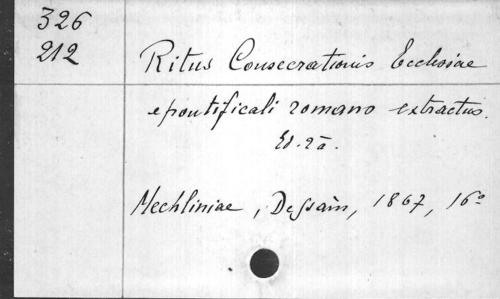 326
212
Ritus Consecrationis Ecclesiae
e pontificali romano extractus.
Ed. 2a.
Mechliniae, Dessain, 1867, 16º